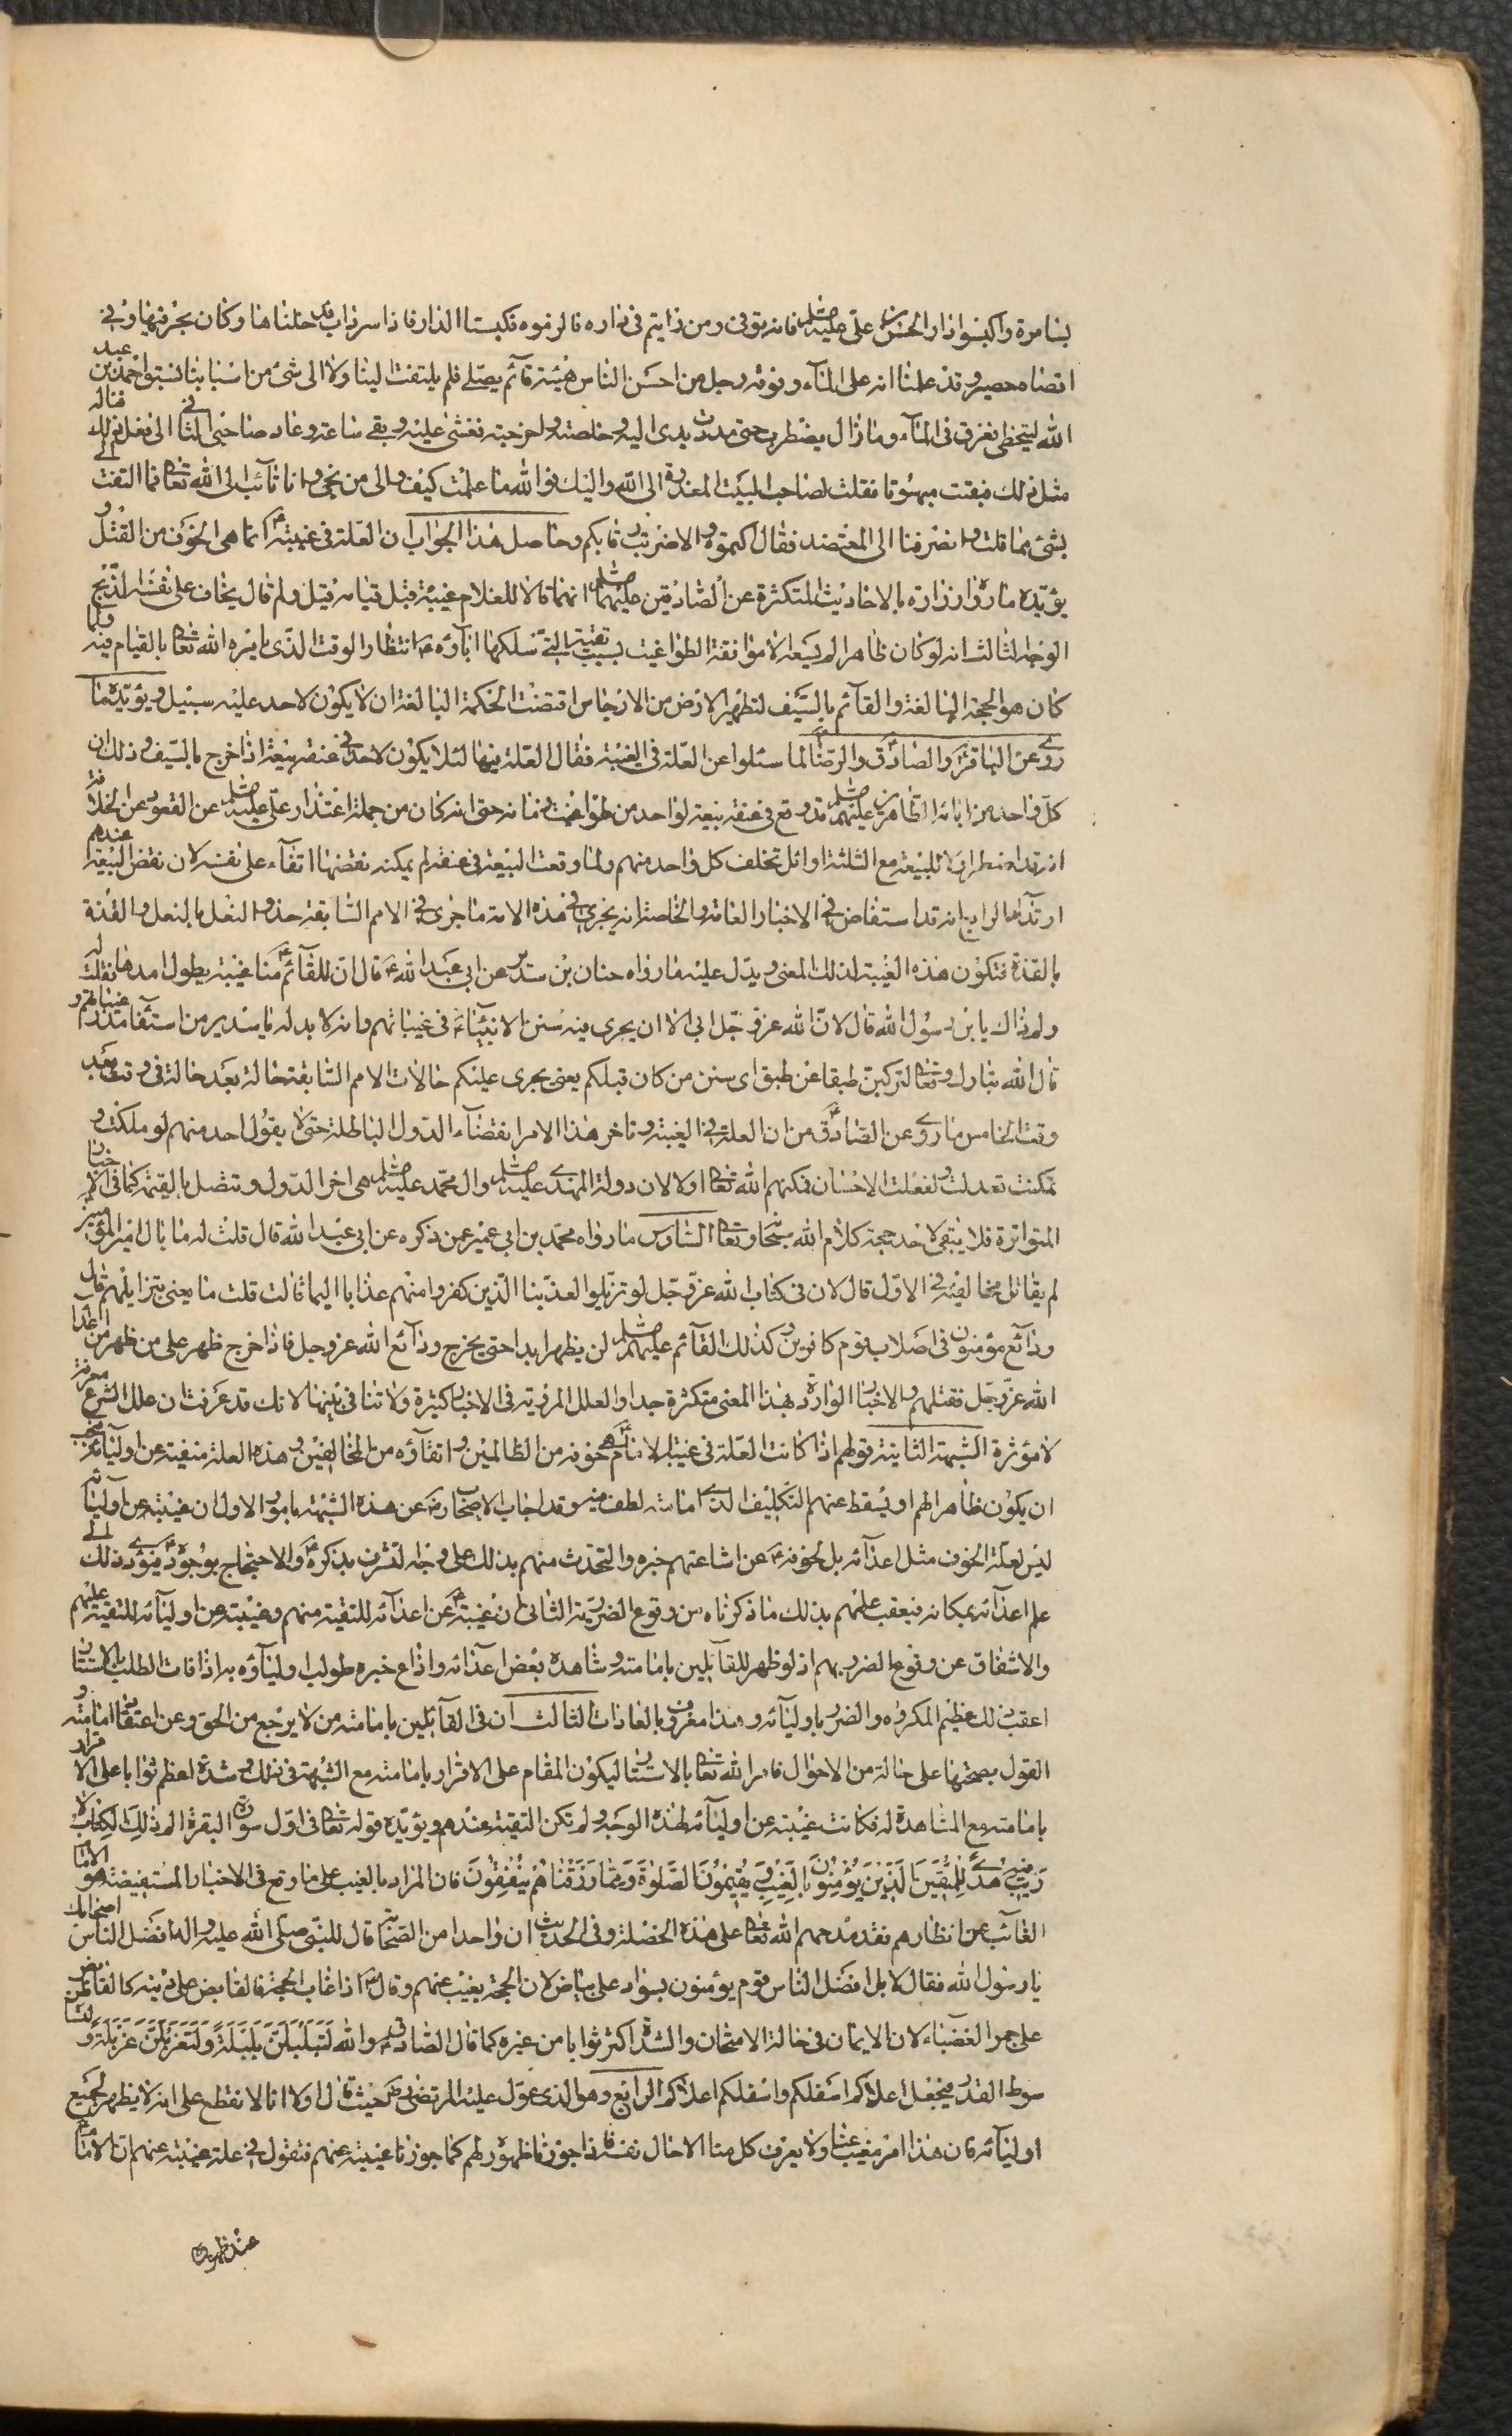 بسامرة واكبسوا دار الحسن بن علی علیهما السلم فانه توفی ومن رايتم فی داره فاتونی براسه فكبسنا الدار فاذا سرداب فدخلناها وكان بحر فيها وفی
اقصاه حصير وقد علمنا انه علی المآء وفوقه رجل من احسن الناس هيئة قآئم يصلی فلم يلتفت الينا ولا الی شئ من اسبابنا فسبق احمد بن عبد
الله ليتخطی فغرق فی المآء وما زال يضطرب حتی مددت يدی اليه وخلصته واخرجته فغشی عليه وبقی ساعة وعاد صاحبی الثانی الی فعل ذلك فناله
مثل ذلك فبقيت مبهوتا فقلت لصاحب البيت المعذرة الی الله واليك فوالله ما علمت كيف والی من نجئ وانا تآئب الی الله تعالی فما التفت الی
بشئ مما قلت وانصرفنا الی المعتضد فقال اكتموه والا ضربت رقابكم وحاصل هذا الجواب ان العلة فی غيبته ع انما هی الخوف من القتل و
يؤيده ما رواه زرارة بالاحاديث المتكثرة عن الصادقين عليهما السلم انهما قالا للغلام غيبة قبل قيامه قيل ولم قال يخاف علی نفسه الذبح
الوجه الثالث انه لو كان ظاهرا لم يسعه الا موافقة الطواغيت بسبب تقيته التی سلكها ابآؤه ع انتظارا لوقت الذی يامره الله تعالی بالقيام فيه ولما
كان هو الحجة البالغة والقآئم بالسيف لتطهير الارض من الارجاس اقتضت الحكمة البالغة ان لا يكون لاحد عليه سبيل ويؤيده ما
روی عن الباقر والصادق والرضا لما سئلوا عن العلة فی الغيبة فقال العلة فيها لئلا يكون لاحد فی عنقه بيعة اذا خرج بالسيف وذلك ان
كل واحد من ابائه الطاهرين عليهم السلم قد وقع فی عنقه بيعة لواحد من طواغيت زمانه حتی انه كان من جملة اعتذار علی عليه السلم عن القعود عن الخلافة
انه قد اضطر اولا للبيعة مع الثلثة اوائل تخلف كل واحد منهم ولما وقعت البيعة فی عنقه لم يمكنه نقضها اتقآء علی نفسه لان نقض البيعة عندهم
ارتداد الرابع انه قد استفاض فی الاخبار العامة والخاصة انه يجری فی هذه الامة ما جری فی الامم السابقة حذو النعل بالنعل والقذة
بالقذة فتكون هذه الغيبة لذلك المعنی ويدل عليه ما رواه حنان بن سدير عن ابی عبد الله ع قال ان للقآئم ع منا غيبة يطول امدها فقلت له
ولم ذاك يا بن رسول الله قال لان الله عز وجل ابی الا ان يجری فيه سنن الانبيآء فی غيباتهم وانه لا بد له يا سدير من استيفآء مدد غيباتهم و
قال الله تبارك وتعالی لتركبن طبقا عن طبق ای سنن من كان قبلكم يعنی يجری عليكم حالات الامم السابقة حالة بعد حالة فی وقت بعد
وقت الخامس ما روی عن الصادق ع من ان العلة فی الغيبة وتاخر هذا الامر انقضآء الدول الباطلة حتی لا يقول احد منهم لو ملكت و
تمكنت لعدلت وفعلت الاحسان فمكنهم الله تعالی اولا لان دولة المهدی عليه السلم وال محمد عليهم السلم هی اخر الدول وتتصل بالقيمة كما فی الاخبار
المتواترة فلا يبقی لاحد حجة كلام الله سبحانه وتعالی السادس ما رواه محمد بن ابی عمير عمن ذكره عن ابی عبد الله قال قلت له ما بال امير المؤمنين
لم يقاتل مخالفيه فی الاول قال لان فی كتاب الله عز وجل لو تزيلوا لعذبنا الذين كفروا منهم عذابا اليما قالت قلت ما يعنی بتزايلهم قال
ودآئع مؤمنون فی اصلاب قوم كافرين وكذلك القآئم عليه السلم لن يظهر ابدا حتی يخرج ودآئع الله عز وجل فاذا خرج ظهر علی من ظهر من اعدآء
الله عز وجل فقتلهم والاخبار الواردة بهذا المعنی متكثرة جدا والعلل المروية فی الاخبار كثيرة ولا تنافی بينها لانك قد عرفت ان علل الشرع معرفة
لا مؤثرة الشبهة الثانية قولهم اذا كانت العلة فی غيبة الامام ع هی خوفه من الظالمين واتقآؤه من المخالفين وهذه العلة منفية عن اوليآئه فيجب
ان يكون ظاهرا لهم او يسقط عنهم التكليف الذی امامته لطف فيه وقد اجاب الاصحاب رض عن هذه الشبهة بامور الاول ان غيبته عن اوليآئه
ليس لعلة الخوف مثل اعدآئه بل لخوفه ع عن اشاعتهم خبره والتحدث منهم بذلك علی وجه التشرف بذكره والاحتجاج بوجوده فيؤدی ذلك الی
علم اعدآئه بمكانه فيعقب علمهم بذلك ما ذكرناه من وقوع الضرر به الثانی ان غيبته ع عن اعدآئه للتقية منهم وغيبته عن اوليآئه للتقية عليهم
والاشفاق عن وقوع الضرر بهم اذ لو ظهر للقآئلين بامامته وشاهده بعض اعدآئه واذاع خبره طولب اوليآؤه به اذا فات الطلب بالاستتار
اعقب ذلك عظيم المكروه والضرر باوليآئه وهذا معروف بالعادات الثالث ان فی القآئلين بامامته من لا يرجع من الحق وعن اعتقاد امامته و
القول بصحتها علی حالة من الاحوال فامره الله تعالی بالاستتار ليكون المقام علی الاقرار بامامته مع الشبهة فی ذلك وشدة اعظم ثوابا علی الاقرار
بامامته مع المشاهدة له فكانت غيبته عن اوليآئه لهذه الوجه ولم تكن التقية عندهم ويؤيده قوله تعالی فی اول سورة البقرة الم ذلك الكتاب لا
ريب فيه هدی للمتقين الذين يؤمنون بالغيب ويقيمون الصلوة ومما رزقناهم ينفقون فان المراد بالغيب علی ما وقع فی الاخبار المستفيضة هو الامام
الغآئب عن انظارهم فقد مدحهم الله تعالی علی هذه الخصلة وفی الحديث ان واحدا من الصحابة قال للنبی صلی الله عليه واله افضل الناس اصحابك
يا رسول الله فقال لا بل افضل الناس قوم يؤمنون بسواد علی بياض لان الحجة يغيب عنهم وقال ع اذا غاب الحجة فالقابض علی دينه كالقابض
علی جمر الغضبآء لان الايمان فی حالة الامتحان والشدة اكثر ثوابا من غيره كما قال الصادق ع والله لتبلبلن بلبلة ولتغربلن غربلة ولتساطن
سوط القدر فيجعل اعلاكم اسفلكم واسفلكم اعلاكم الرابع وهو الذی عول عليه المرتضی رض حيث قال اولا انا لا نقطع علی انه لا يظهر لجميع
اوليآئه فان هذا امر مغيب عنا ولا يعرف كل منا الا حال نفسه فاذا جوزنا ظهوره لهم كما جوزنا غيبته عنهم فنقول فی علة غيبته عنهم ان الامام
عند ظهوره